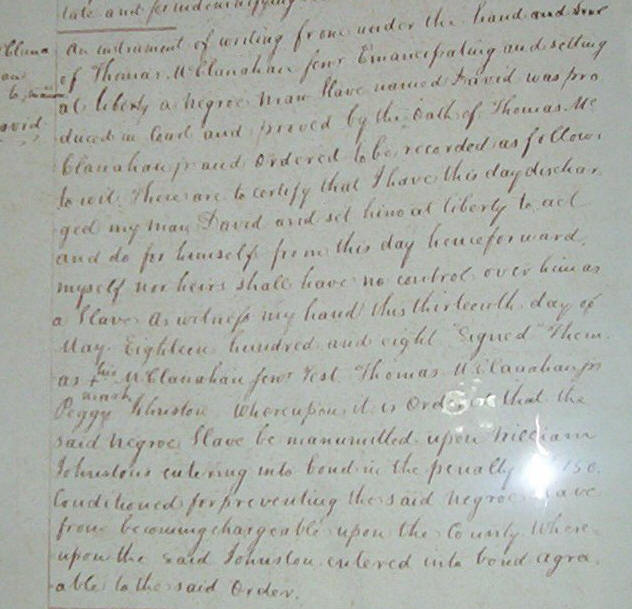 tate and for indemnifying
An instrument of writing from under the hand and seal
of Thomas McClanahan senr Emancipating and setting
at liberty a negroe man slave named David was pro
duced in Court and proved by the Oath of Thomas Mc
Clanahan jr and Ordered to be recorded as follows
to wit. These are to certify that I have this day dischar
ged my man David and set him at liberty to act
and do for himself from this day henceforward,
myself nor heirs shall have no control over him as
a Slave. As witness my hand this thirteenth day of
May. Eighteen hundred and eight "Signed" Thom
as his mark McClanahan senr Test Thomas McClanahan jr
Peggy Johnston Whereupon it is Ordered that the
said negroe Slave be manumitted upon William
Johnstons entering into bond in the penalty 150.
Conditioned for preventing the said negroe slave
from becoming chargeable upon the County. Where
upon the said Johnston entered into bond agre
able to the said Order.
Clana
avid